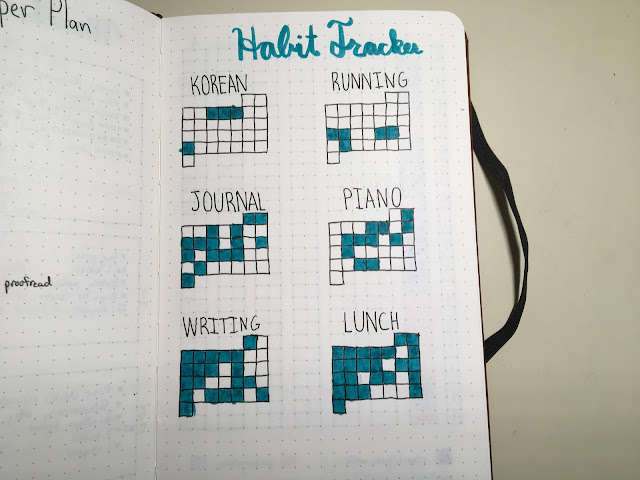 per Plan
proofread
Habit Tracker
KOREAN
RUNNING
JOURNAL
PIANO
WRITING
LUNCH